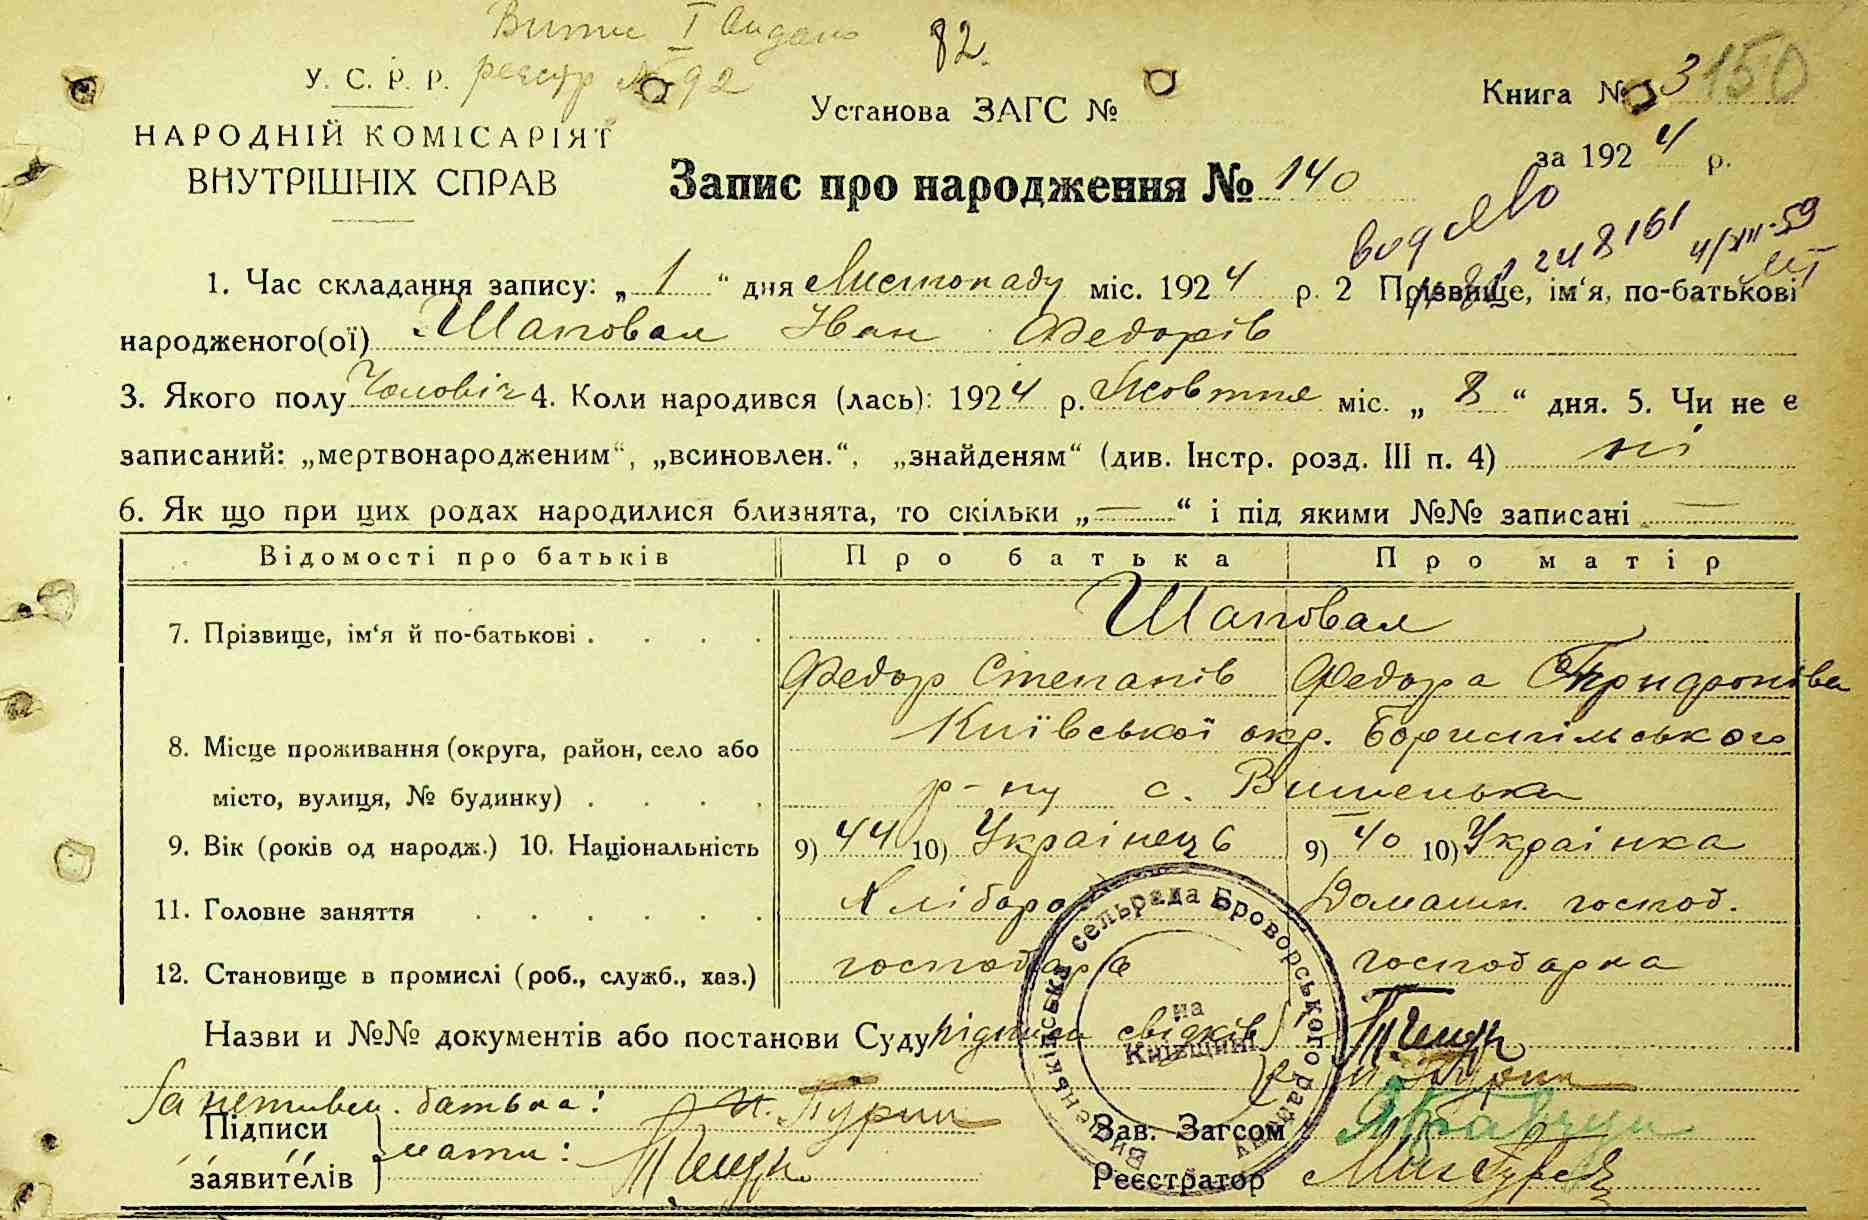 82.
У. С. Р. Р.
реєстр № 92
Книга № 3 150
Установа ЗАГС №
НАРОДНІЙ КОМІСАРІЯТ
ВНУТРІШНІХ СПРАВ
за 1924 р.
Запис про народження № 140
248161
4/XII-59
1. Час складання запису: „ 1 “ дня Листопаду міс. 1924 р. 2 Прізвище, ім‘я, по-батькові
народженого(ої) Шаповал Іван Федорів
3. Якого полу Чоловіч 4. Коли народився (лась): 1924 р. Жовтня міс. „ 8 “ дня. 5. Чи не є
записаний: „мертвонародженим“, „всиновлен.“, „знайденям“ (див. Інстр. розд. III п. 4) ні
6. Як що при цих родах народилися близнята, то скільки „ — “ і під якими №№ записані —
Відомості про батьків Про батька Про матір
7. Прізвище, ім‘я й по-батькові . . . . Шаповал
Федор Степанів Федора
Київської окр. Бориспільського
8. Місце проживання (округа, район, село або
місто, вулиця, № будинку) . . . . р-ну с. Вишеньки
9. Вік (років од народж.) 10. Національність 9) 44 10) Українець 9) 40 10) Українка
11. Головне заняття . . . . . . Хлібороб Домашн. господ.
12. Становище в промислі (роб., служб., хаз.) господарь господарка
Назви и №№ документів або постанови Суду підписи свідків
За неписьмен. батька:
Підписи
заявителів
мати:
Зав. Загсом
Реєстратор
Вишеньківська сельрада Броворського району
на
Київщині